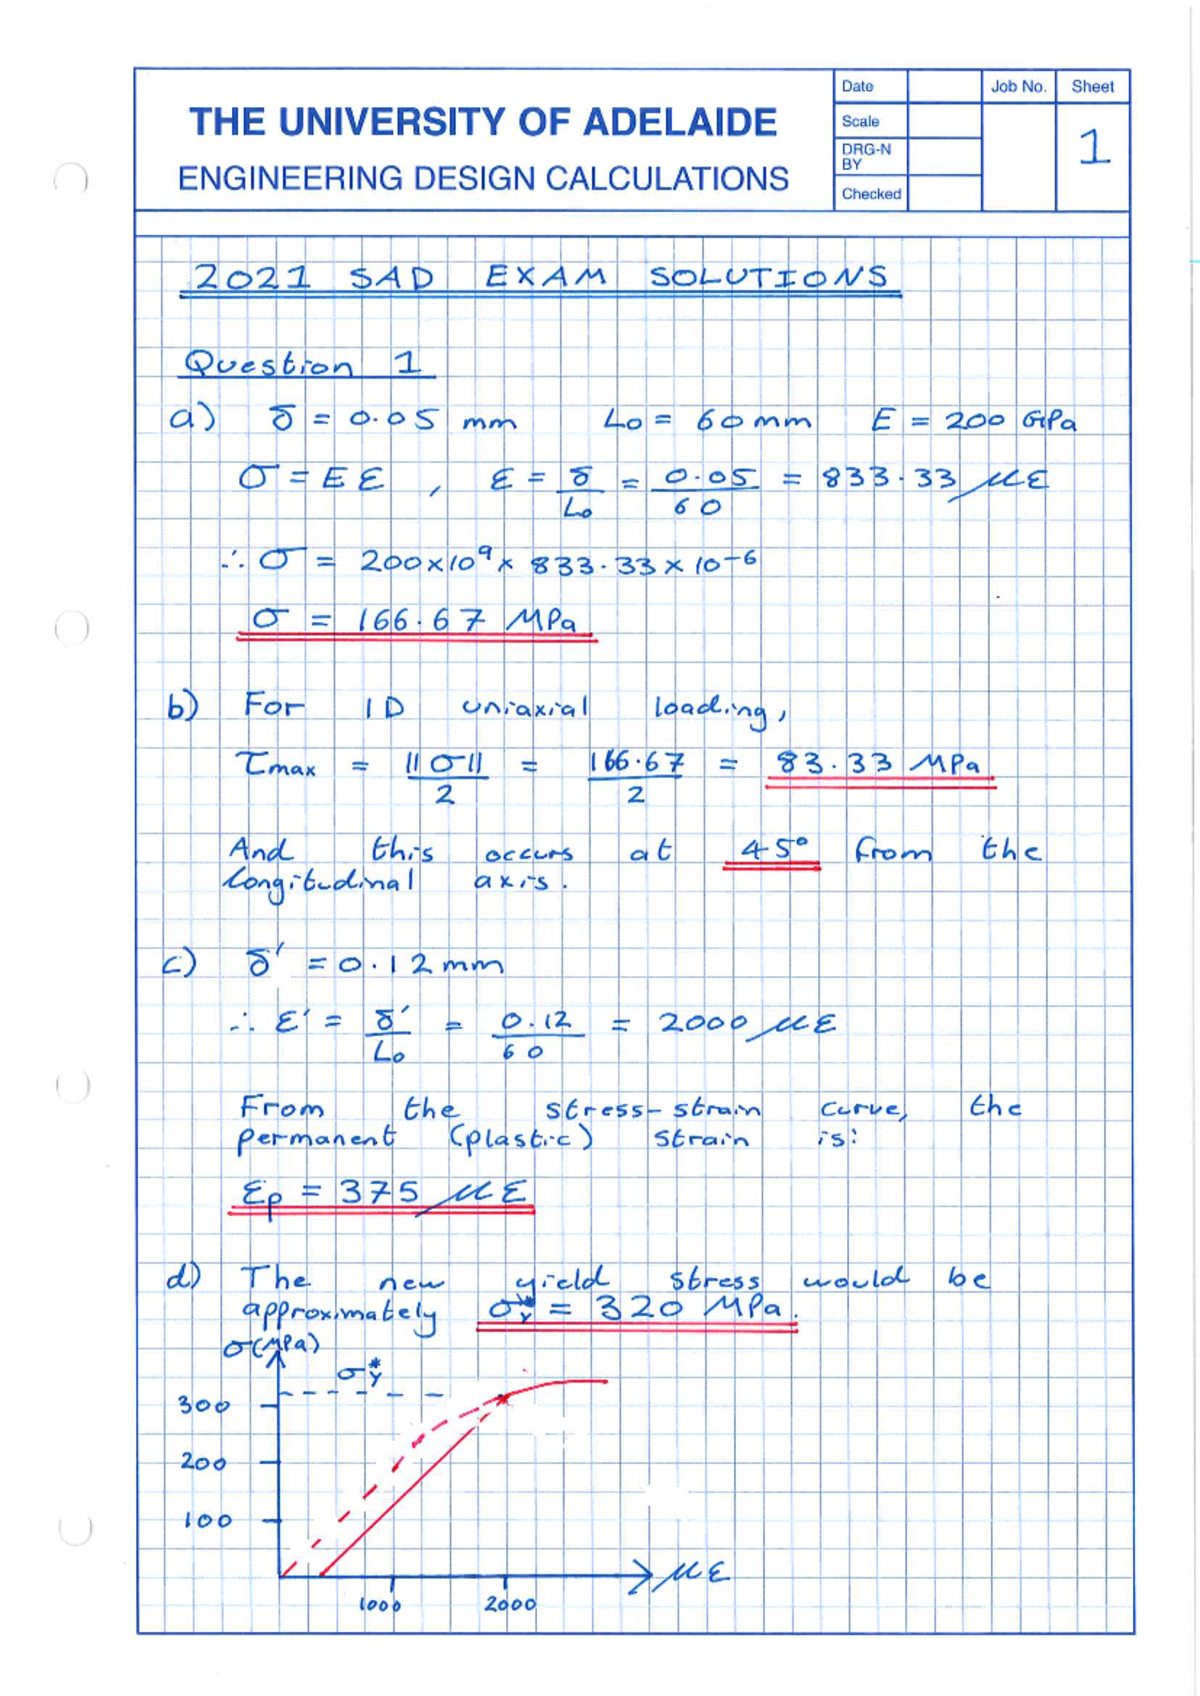 THE UNIVERSITY OF ADELAIDE
ENGINEERING DESIGN CALCULATIONS
Date
Scale
DRG-N BY
Checked
Job No.
Sheet
1
2021 SAD EXAM SOLUTIONS
Question 1
a) δ = 0.05 mm L₀ = 60mm E = 200 GPa
σ = Eε , ε = δ/L₀ = 0.05/60 = 833.33 με
∴ σ = 200×10⁹ × 833.33 × 10⁻⁶
σ = 166.67 MPa
b) For 1D uniaxial loading,
τmax = ||σ||/2 = 166.67/2 = 83.33 MPa
And this occurs at 45° from the
longitudinal axis.
c) δ' = 0.12mm
∴ ε' = δ'/L₀ = 0.12/60 = 2000 με
From the stress-strain curve, the
permanent (plastic) strain is:
εp = 375 με
d) The new yield stress would be
approximately σY* = 320 MPa.
σ(MPa)
σY*
300
200
100
με
1000 2000